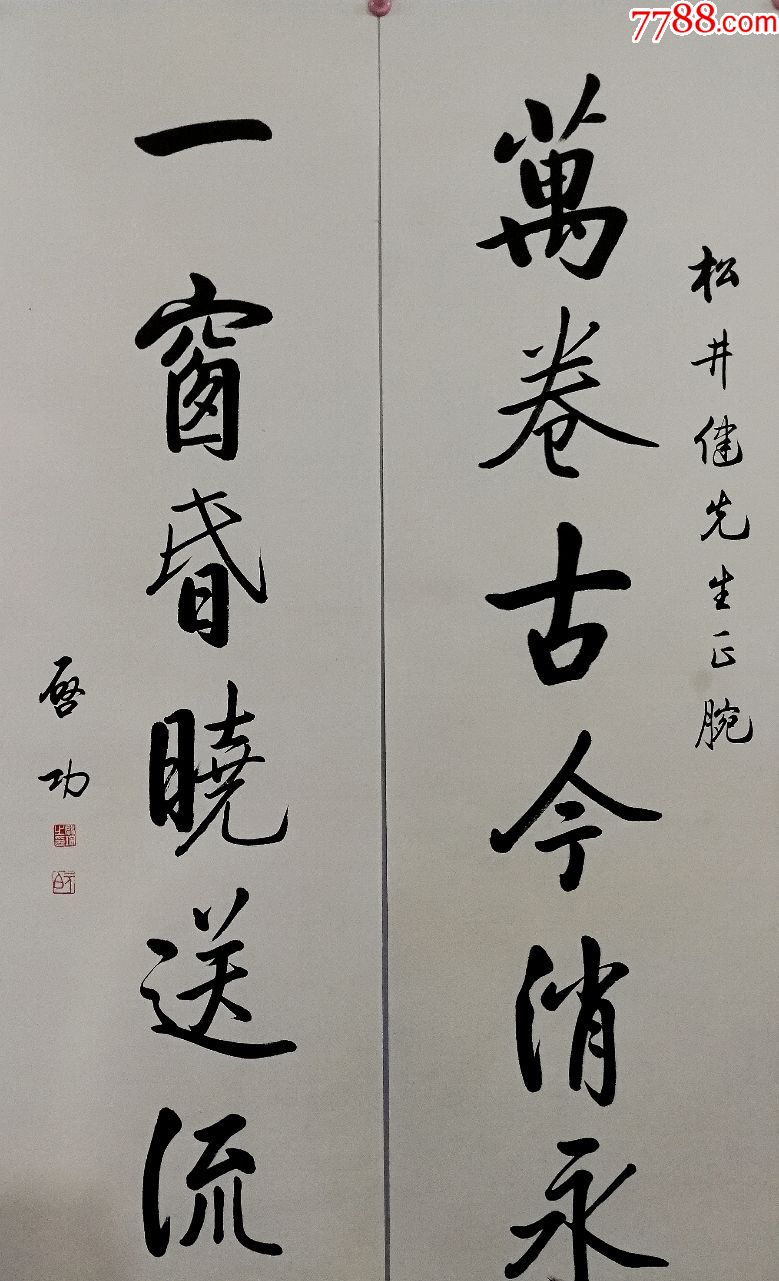 7788.com
松井健先生正腕
萬卷古今消永
一窗昏曉送流
啓功